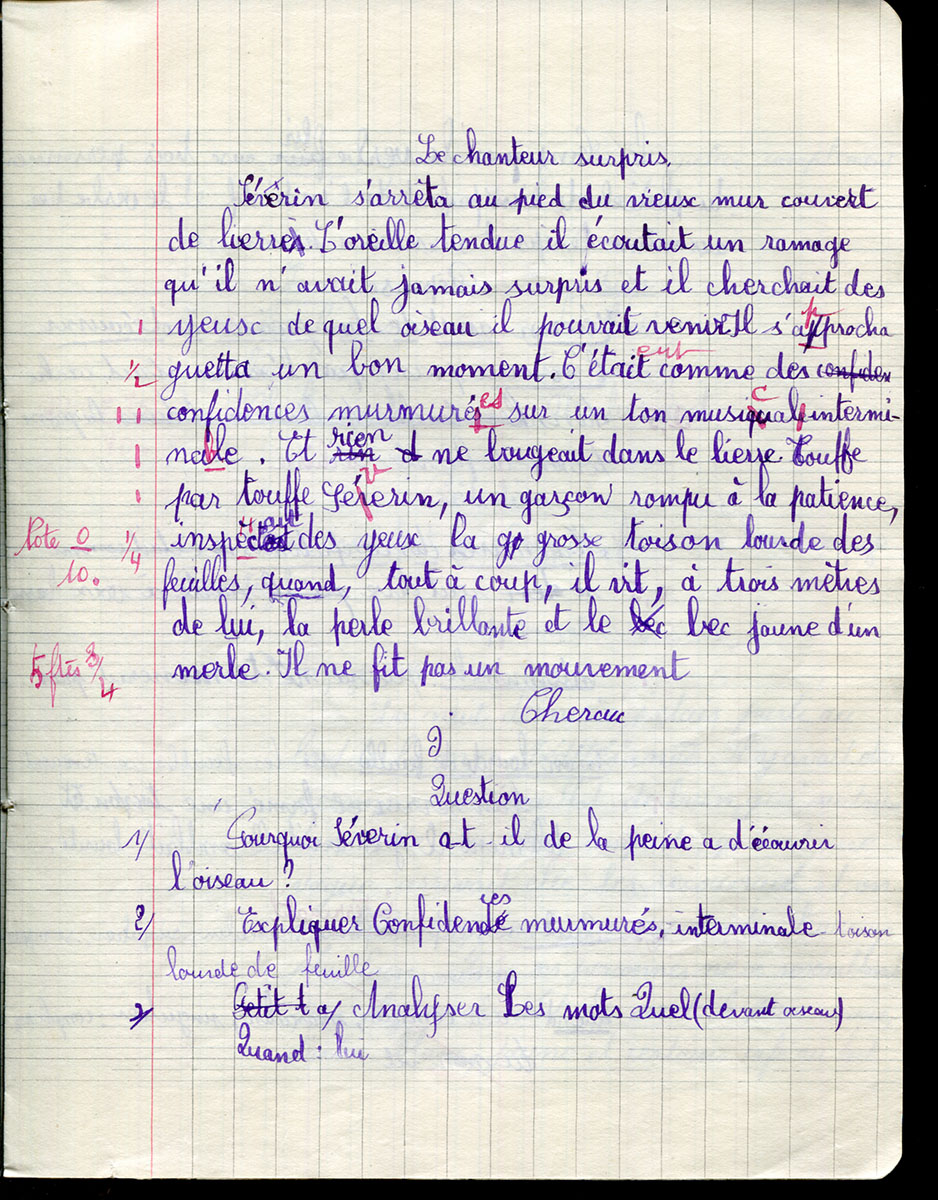 Le chanteur surpris.
Séverin s'arrêta au pied du vieux mur couvert
de lierre. L'oreille tendue il écoutait un ramage
qu'il n'avait jamais surpris et il cherchait des
1 yeux de quel oiseau il pouvait venir Il s'approcha
1/2 guetta un bon moment. C'était comme des confiden
eut
1 1 confidences murmurés sur un ton musiqual intermi-
es c
1 nable. Et rien d ne bougeait dans le lierre Touffe
1 par touffe Séverin, un garçon rompu à la patience,
v
Note 0/10. 1/4 inspectait des yeux la gr grosse toison lourde des
feuilles, quand, tout à coup, il vit, à trois mètres
de lui, la perle brillante et le béc bec jaune d'un
5 ftes 3/4 merle. Il ne fit pas un mouvement
Cherau
I
Question
1) Pourquoi Séverin a-t-il de la peine a d'écouvrir
l'oiseau ?
2) Expliquer Confidences murmurés, interminale toison
lourde de feuille
3) a) Analyser Les mots Quel (devant oiseau)
Quand : lui